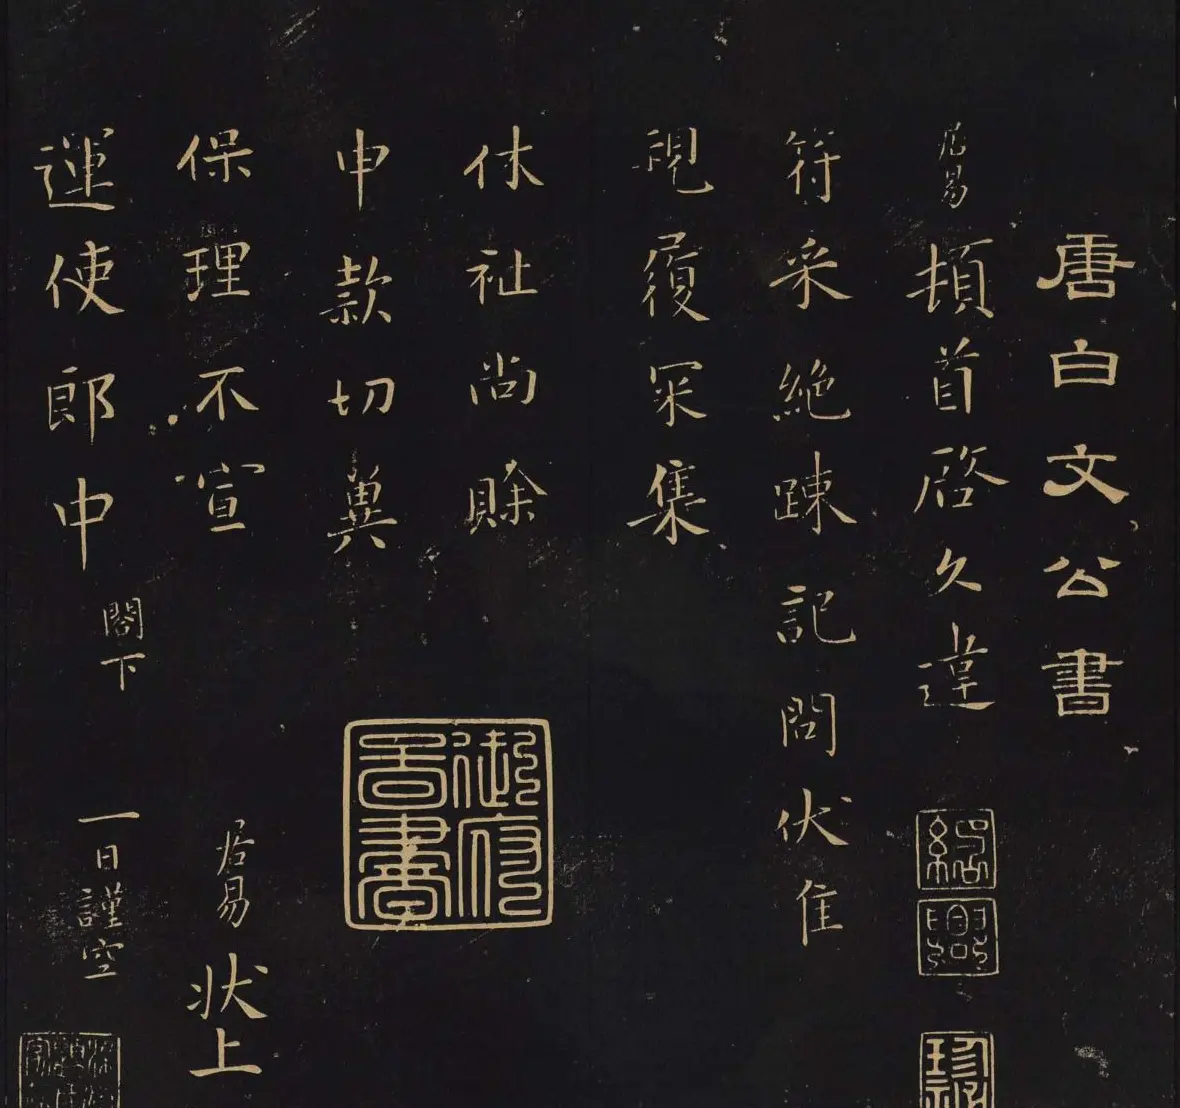 唐白文公書
居易頓首啓久違
符采絶踈記問伏隹
視履罙集
休祉尚賖
申款切冀
保理不宣
居易状上
運使郎中
閤下
一日謹空
御府圖書
紹興